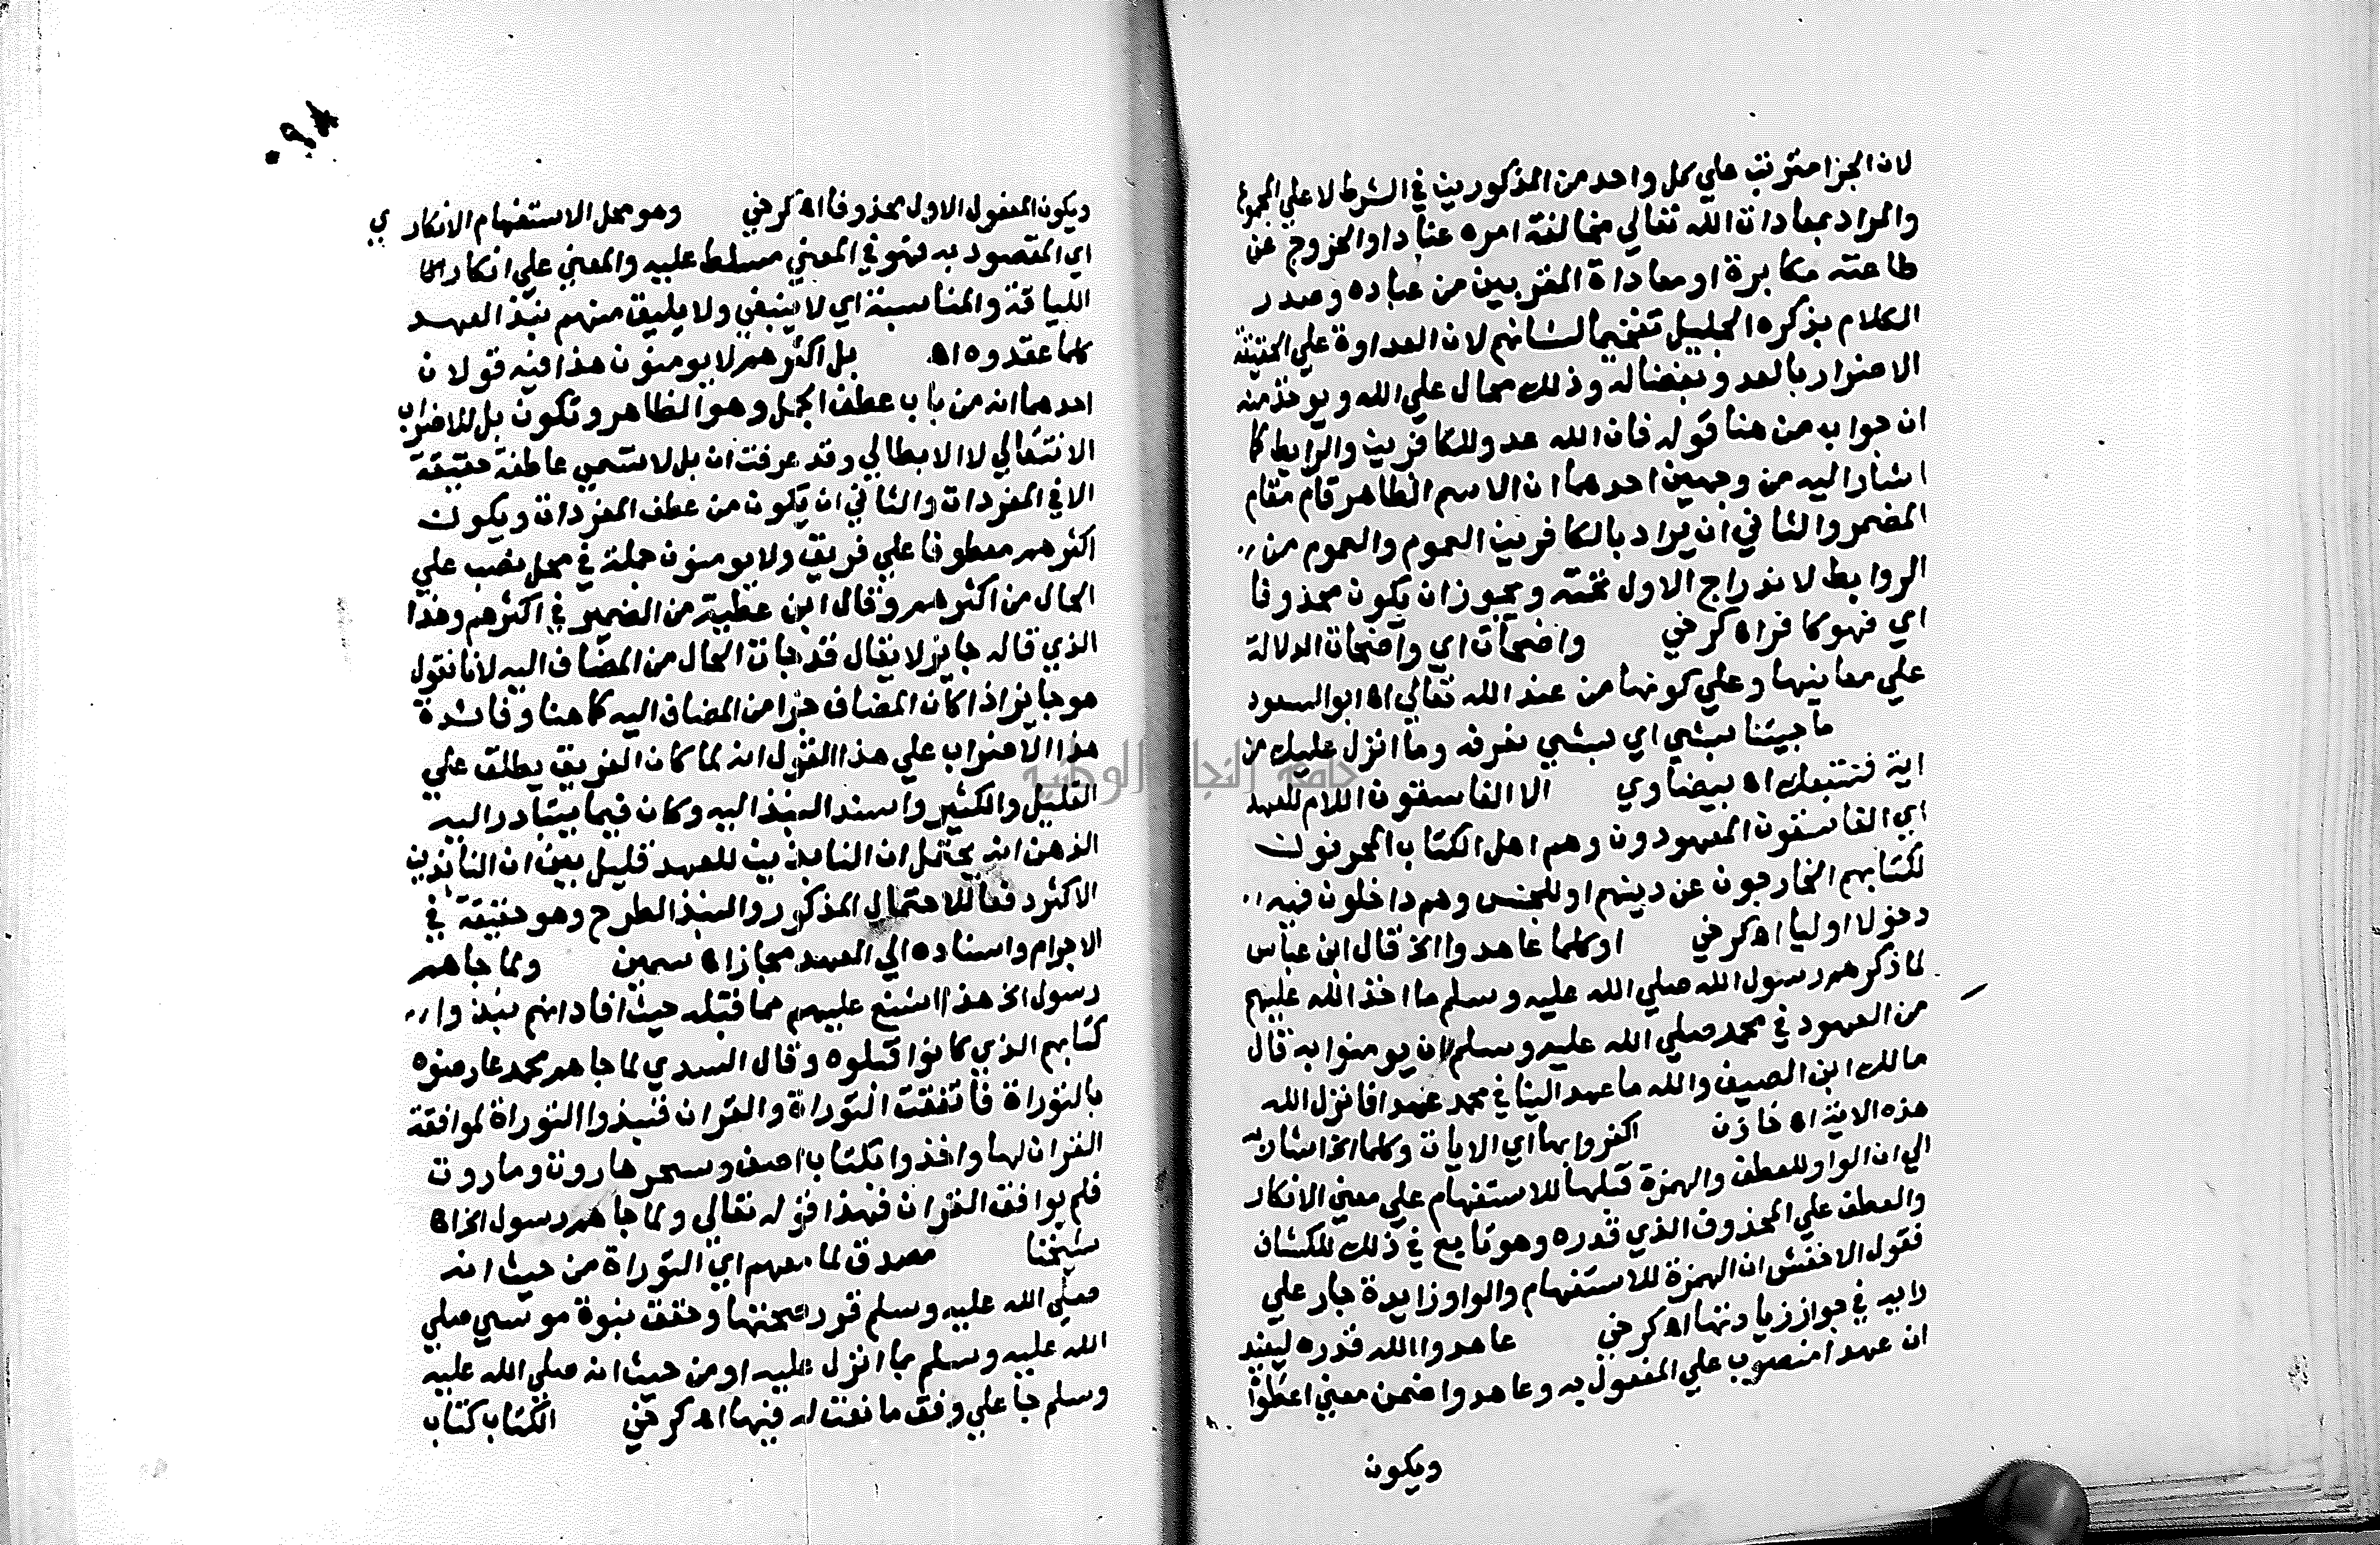 لان الجزا مترتب علي كل واحد من المذكورين في الشرط لا علي المجموع
والمراد بمعاداة الله تعالي مخالفة امره عنادا والخروج عن
طاعته مكابرة او معاداة المقربين من عباده وصدر
الكلام بذكره الجليل تفخيما لشانهم لان العداوة علي الحقيقة
الاضرار بالعدو بغضا له وذلك محال علي الله ويوخذ منه
ان جواب من هنا قوله فان الله عدو للكافرين والرابط كما
اشار اليه من وجهين احدهما ان الاسم الظاهر قام مقام
المضمر والثاني ان يراد بالكافرين العموم والعموم من
الروابط لاندراج الاول تحته ويجوز ان يكون محذوفا
اي فهو كافر اه كرخي واضحات اي واضحات الدلالة
علي معانيها وعلي كونها من عند الله تعالي اه ابو السعود
ما جيتنا بشي اي بشي نعرفه وما انزل عليك من
اية فنتبعك اه بيضاوي الا الفاسقون اللام للعهد
اي الفاسقون المعهودون وهم اهل الكتاب المحرفون
لكتابهم الخارجون عن دينهم او للجنس وهم داخلون فيه
دخولا اوليا اه كرخي او كلما عاهدوا الخ قال ابن عباس
لما ذكرهم رسول الله صلي الله عليه وسلم ما اخذ الله عليهم
من العهود في محمد صلي الله عليه وسلم ان يومنوا به قال
مالك ابن الصيف والله ما عهد الينا في محمد عهدا فانزل الله
هذه الاية اه خازن اكفروا بها اي الايات وكلما الخ اشار به
الي ان الواو للعطف والهمزة قبلها للاستفهام علي معني الانكار
والعطف علي المحذوف الذي قدره وهو تابع في ذلك للكشاف
فقول الاخفش ان الهمزة للاستفهام والواو زايدة جار علي
رايه في جواز زيادتها اه كرخي عاهدوا الله قدره ليفيد
ان عهدا منصوب علي المفعول به وعاهدوا ضمن معني اعطوا
ويكون
ويكون المفعول الاول محذوفا اه كرخي وهو محل الاستفهام الانكاري
اي المقصود به فهو في المعني مسلط عليه والمعني علي انكار
اللياقة والمناسبة اي لا ينبغي ولا يليق منهم نبذ العهد
كلما عقدوه اه بل اكثرهم لا يومنون هذا فيه قولان
احدهما انه من باب عطف الجمل وهو الظاهر وتكون بل للاضراب
الانتقالي لا الابطالي وقد عرفت ان بل لا تسمي عاطفة حقيقة
الا في المفردات والثاني ان يكون من عطف المفردات ويكون
اكثرهم معطوفا علي فريق ولا يومنون جملة في محل نصب علي
الحال من اكثرهم وقال ابن عطية من الضمير في اكثرهم وهذا
الذي قاله جايز لا يقال قد جات الحال من المضاف اليه لانا نقول
هو جايز اذا كان المضاف جزا من المضاف اليه كما هنا وفائدة
هذا الاضراب علي هذا القول انه لما كان الفريق يطلق علي
القليل والكثير واسند النبذ اليه وكان فيما يتبادر اليه
الذهن انه يحتمل ان النابذين للعهد قليل بين ان النابذين
الاكثر دفعا للاحتمال المذكور والنبذ الطرح وهو حقيقة في
الاجرام واسناده الي العهد مجاز اه سمين ولما جاهم
رسول الخ هذا اشنع عليهم مما قبله حيث افاد انهم نبذوا
كتابهم الذي كانوا قبلوه وقال السدي لما جاهم محمد عارضوه
بالتوراة فاتفقت التوراة والقران فنبذوا التوراة لموافقة
القران لها واخذوا بكتاب اصف وسحر هاروت وماروت
فلم يوافق القران فهذا قوله تعالي ولما جاهم رسول الخ اه
شيخنا مصدق لما معهم اي التوراة من حيث انه
صلي الله عليه وسلم قرر صحتها وحقق نبوة موسي صلي
الله عليه وسلم بما انزل عليه او من حيث انه صلي الله عليه
وسلم جا علي وفق ما نعت له فيها اه كرخي الكتاب كتاب
جامعة النجاح الوطنية